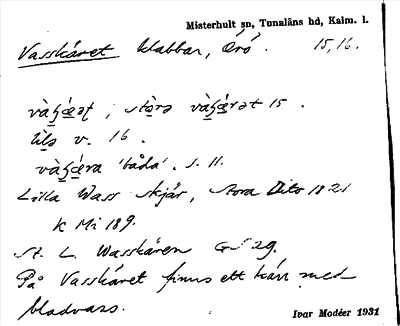 Misterhult sn, Tunaläns hd, Kalm. l.
Vasskäret klabbar, Örö. 15, 16.
stò̱rə 15.
v. 16.
'båda'. s. 11.
Lilla Wass skjär, Stora Dito 1821
K Mi 189.
St. L. Wasskären GS 29.
På Vasskäret finns ett kärr med
bladvass.
Ivar Modéer 1931